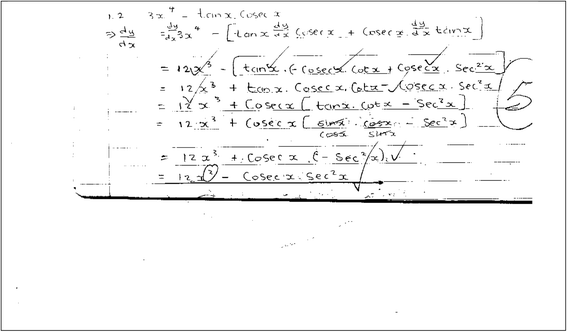 1.2 3x⁴ - tanx. Cosecx
⇒ dy/dx = dy/dx 3x⁴ - [tanx dy/dx Cosecx + Cosecx. dy/dx tanx]
= 12x³ - [tanx. (-Cosecx Cotx + Cosecx. Sec²x
= 12x³ + tanx. Cosecx. Cotx - Cosecx. Sec²x
= 12x³ + Cosecx [tanx. Cotx - Sec²x]
= 12x³ + Cosecx [sinx/cosx . cosx/sinx - Sec²x]
= 12x³ + Cosecx (- Sec²x)
= 12x² - Cosecx. Sec²x
5